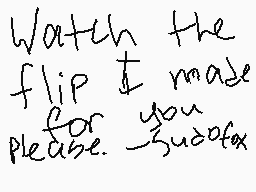 Watch the
flip I made
for you
please. -Sudofox